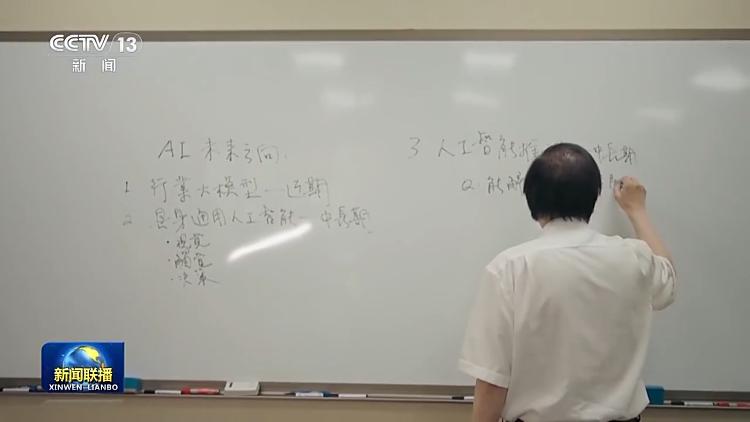 CCTV 13
新闻
AI 未来方向:
1 行業大模型—近期
2 具身通用人工智能—中長期
·視覚
·触覚
·决策
3 人工智能推 中長期
Q. 能解
新闻联播
XINWEN-LIANBO